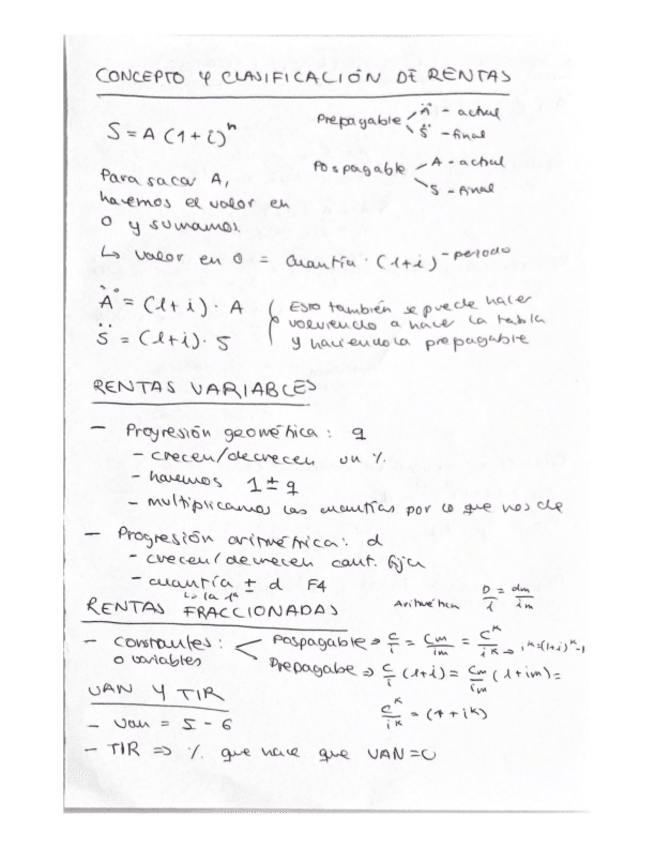 CONCEPTO Y CLASIFICACIÓN DE RENTAS
S = A (1+i)^n
Prepagable Ä - actual
S̈ - final
Pospagable A - actual
S - final
Para sacar A,
hacemos el valor en
0 y sumamos
↳ valor en 0 = cuantía · (1+i)^-periodo
Ä = (1+i) · A
S̈ = (1+i) · S
Esto también se puede hacer
volviendo a hacer la tabla
y haciendola prepagable
RENTAS VARIABLES
- Progresión geométrica: q
- crecen/decrecen un %
- hacemos 1 ± q
- multiplicamos las cuantías por lo que nos de
- Progresión aritmética: d
- crecen/decrecen cant. fija
- cuantía ± d F4
↳ la 1ª
Aritmética D/i = dm/im
RENTAS FRACCIONADAS
- constantes: Pospagable => C/i = Cm/im = C^k/i^k → i^k=(1+i)^k-1
o variables Prepagabe => C/i (1+i) = Cm/im (1+im) =
C^k/i^k = (1+i^k)
VAN Y TIR
- Van = 5 - 6
- TIR => % que hace que VAN=0